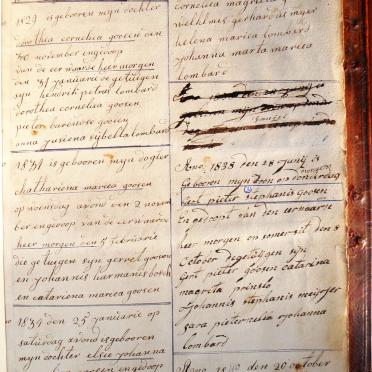 1829 is gebooren mijn dochter
dorothea cornelica goosen den
30 november en gedoop
van de eerwaarse heer morgen
den 31 januarie de getuigen
sijn hendrik petrus lombard
dorothea cornelia goosen
pieter barendse goosen
anna jusina sijbella lombard
1831 is gebooren mijn dogter
chathariena maria goosen
op woensdag avond den 2 novem
ber en gedoop van de eerwaarde
heer morgen den 5 februarie
die getuigen sijn gerret goosen
en johannis harmanis bosch
en catariena maria goosen
1834 den 25 januarie op
saturdag avond is gebooren
mijn dochter elsie johanna
goosen en gedoop
cornelia magrieta
wilhelmus gerhardus mijer
helena maria lombard
johanna marta maria
lombard
Ano 1838 den 28 junij is
Gebooren mijn soon op donderdag
morgen
Gert pieter stephanis goosen
En gedoopt van den eerwaarde
heer morgen on somersit den 8
October de getuijgen sijn
gert pieter goosen catarina
magreta prinslo
Johannis stephanis meijser
sara pieternella johanna
lombard
Ano 1840 den 20 october